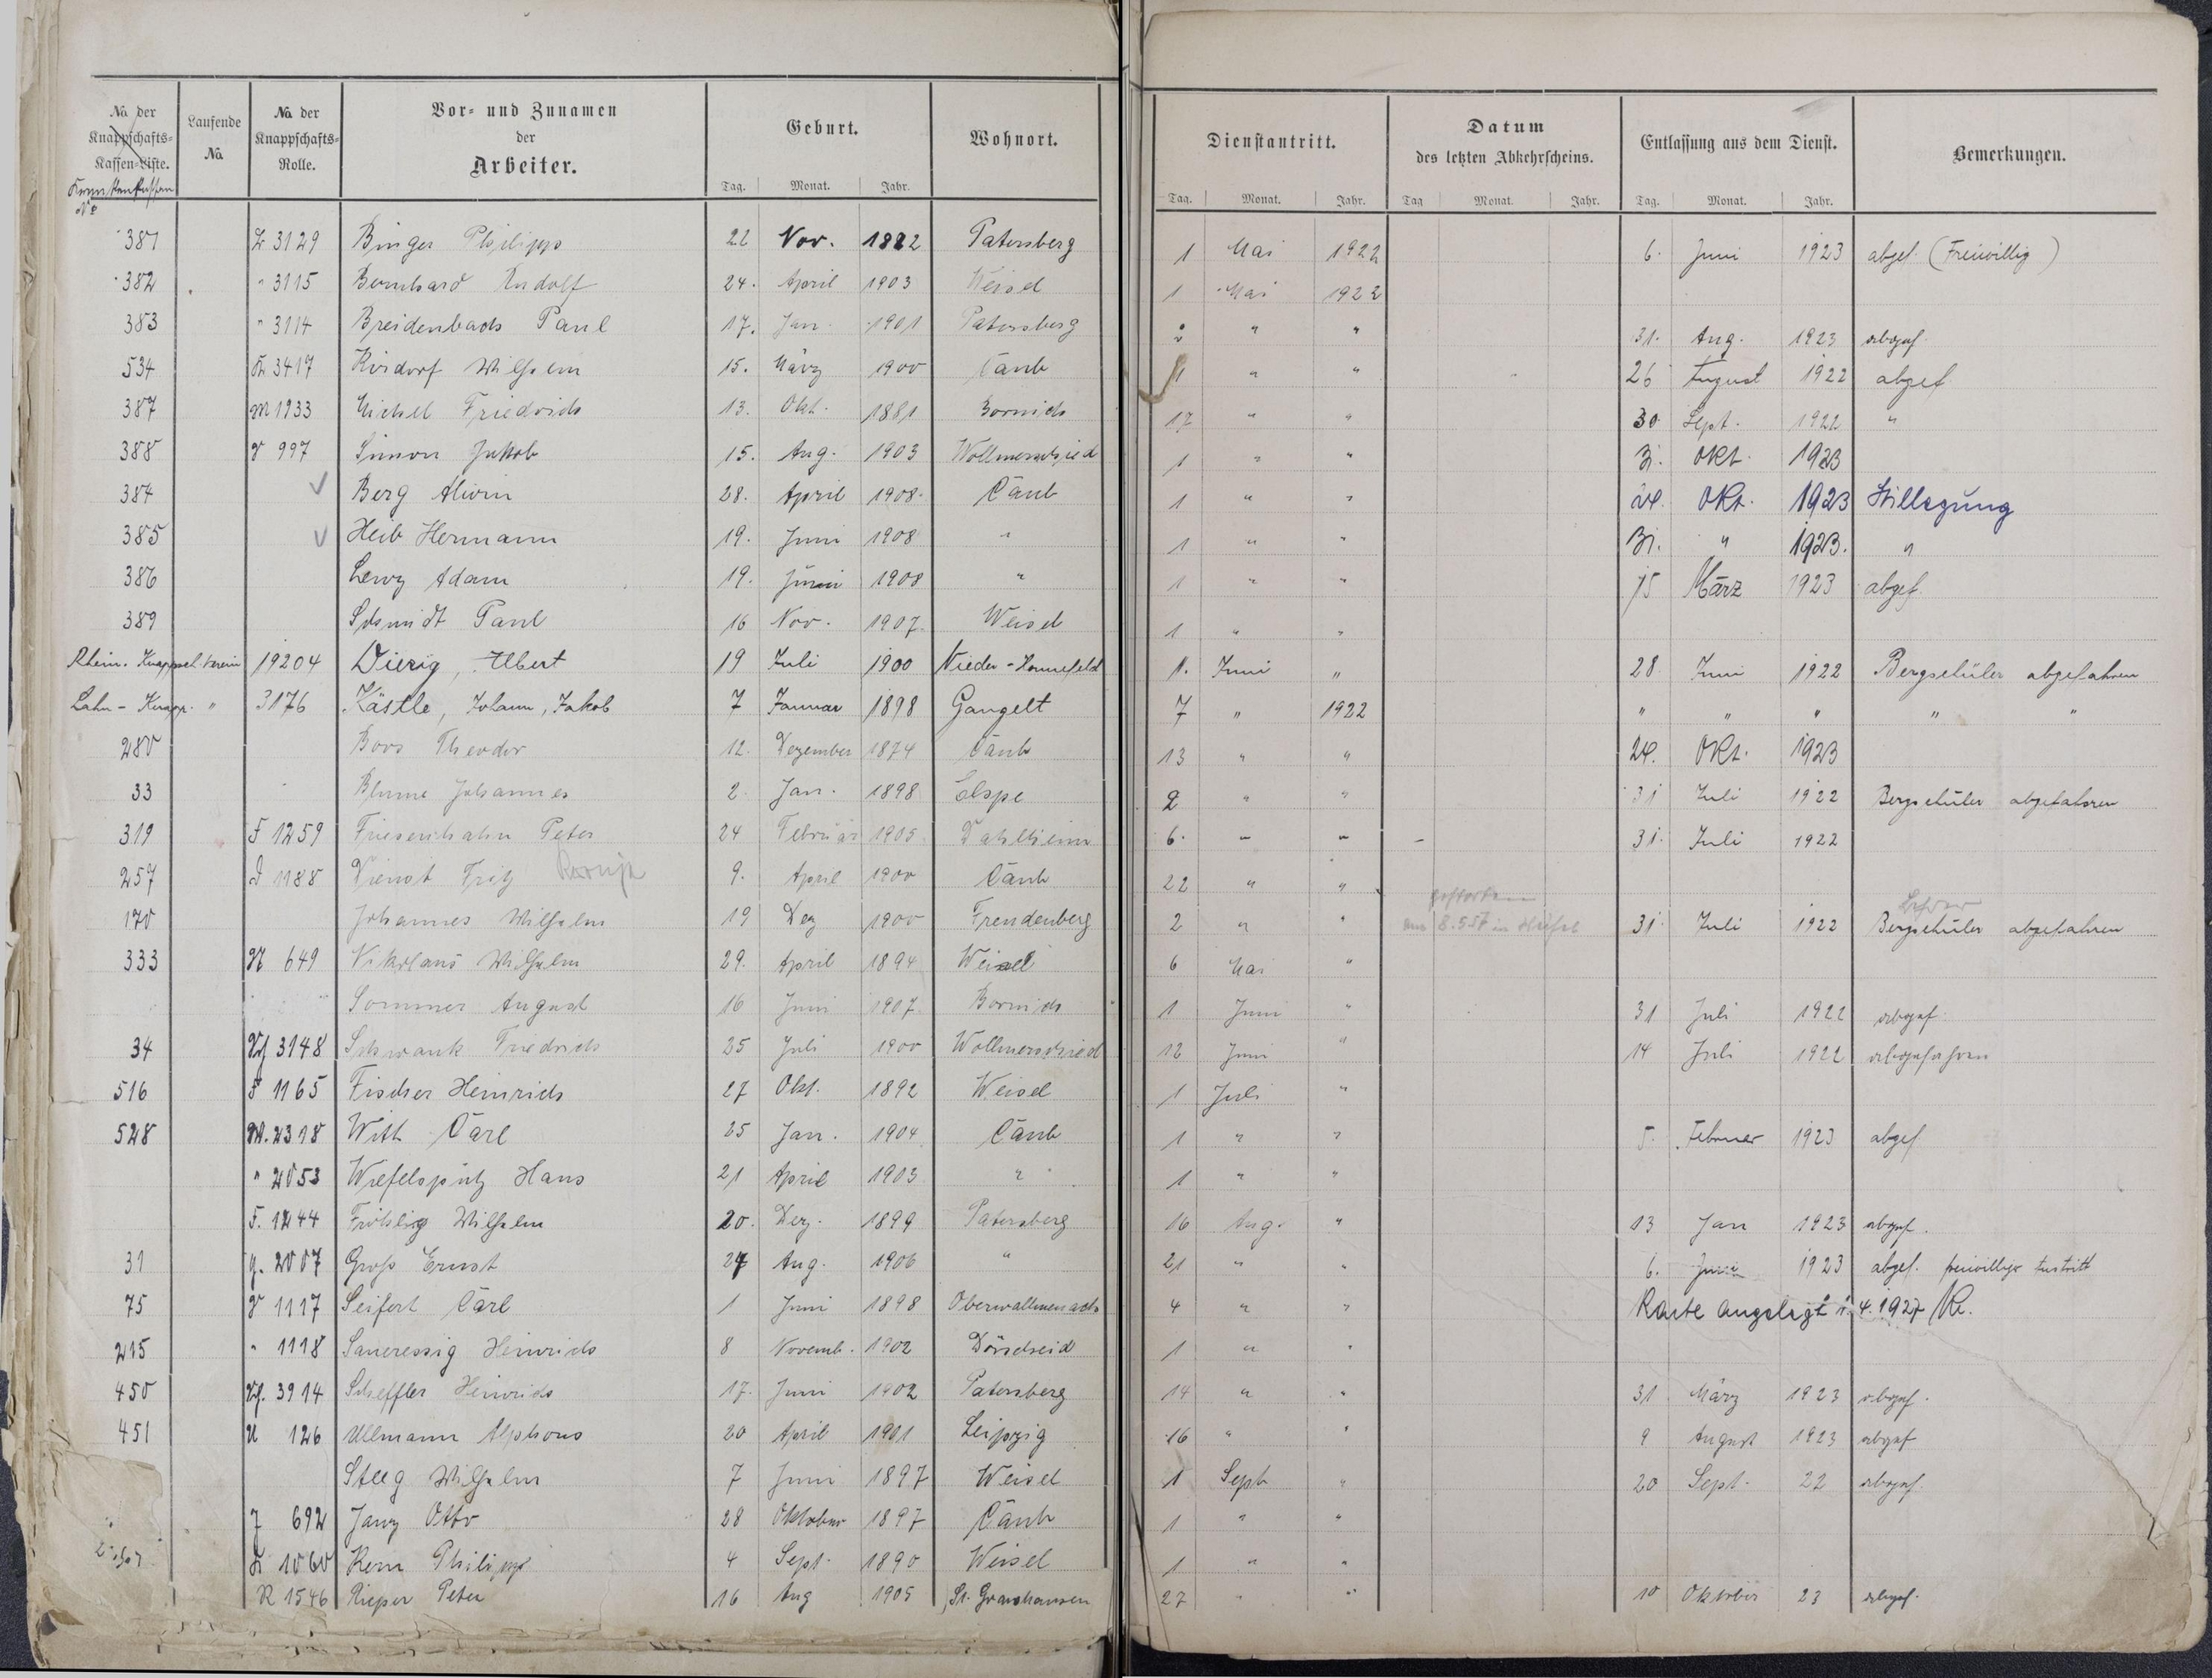 No der Knappschafts-Kassen-Liste. Krankenkassen No | Laufende No | No der Knappschafts-Rolle. | Vor- und Zunamen der Arbeiter. | Geburt. Tag. Monat. Jahr. | Wohnort. | Dienstantritt. Tag. Monat. Jahr. | Datum des letzten Abkehrscheins. Tag Monat. Jahr. | Entlassung aus dem Dienst. Tag. Monat. Jahr. | Bemerkungen.
381 3129 Binger Philipp 22 Nov. 1882 Patersberg 1 Mai 1922 6. Juni 1923 abgef. (Freiwillig)
382 " 3115 Bernhard Rudolf 24. April 1903 Weisel 1 Mai 1922
383 " 3114 Breidenbach Paul 17. Jan. 1901 Patersberg " " 31. Aug. 1923 abgef.
534 K 3417 Kirdorf Wilhelm 15. März 1900 Caub 1 " " 26 August 1922 abgef
387 M 1933 Michel Friedrich 13. Okt. 1881 Bornich 17 " " 30 Sept. 1922 "
388 997 Simon Jakob 15. Aug. 1903 Wollmerschied 1 " " 31. Okt. 1923
384 Berg Alwin 28. April 1908. Caub 1 " " 24. Okt. 1923 Stillegung
385 Heib Hermann 19. Juni 1908 " 1 " " 31. " 1923. "
386 Lewy Adam 19. Juni 1908 " 1 " " 15 März 1923 abgef.
389 Schmidt Paul 16 Nov. 1907. Weisel 1 " "
Rhein. Knappsch. Verein 19204 Dierig, Albert 19 Juli 1900 Nieder-Honnefeld 1. Juni " 28. Juni 1922 Bergschüler abgefahren
Lahn-Knapp. " 3176 Kästle, Johann, Jakob 7 Januar 1898 Gangelt 7 " 1922 " " " " "
280 Boos Theodor 12. Dezember 1874 Caub 13 " " 24. Okt. 1923
33 Blume Johannes 2. Jan. 1898 Elspe 2 " " 31 Juli 1922 Bergschüler abgefahren
319 F 1259 Friesenhahn Peter 24 Februar 1905 Dahlheim 6. " " 31. Juli 1922
257 D 1188 Dienst Fritz 9. April 1900 Caub 22 " "
170 Johannes Wilhelm 19 Dez 1900 Freudenberg 2 " " gestorben am 8.5.57 in 31. Juli 1922 Bergschüler abgefahren
333 N 649 Nikolaus Wilhelm 29. April 1894 Weisel 6 Mai "
Sommer August 16 Juni 1907. Bornich 1 Juni " 31 Juli 1922 abgef.
34 3148 Schwank Friedrich 25 Juli 1900 Wollmerschied 12 Juni " 14 Juli 1922 abgefahren
516 F 1165 Fischer Heinrich 27 Okt. 1892 Weisel 1 Juli "
528 W. 2318 Will Carl 25 Jan. 1904. Caub 1 " " 5. Februar 1923 abgef
" 2053 Wiefelspütz Hans 21 April 1903 " 1 " "
F. 1244 Fröhlig Wilhelm 20. Dez. 1899 Patersberg 16 Aug. " 13 Jan 1923 abgef.
31 G. 2007 Groß Ernst 27 Aug. 1906 " 21 " " 6. Juni 1923 abgef. freiwilliger Austritt
75 1117 Seifert Carl 1 Juni 1898 Oberwallmenach 4 " " Karte angelegt 1. 4. 1927 Kl.
215 " 1118 Saueressig Heinrich 8 Novemb. 1902 Dörscheid 1 " "
450 3914 Scheffler Heinrich 17. Juni 1902 Patersberg 14 " " 31 März 1923 abgef.
451 U 126 Ullmann Alphons 20 April 1901 Leipzig 16 " " 9 August 1923 abgef
Steeg Wilhelm 7 Juni 1897 Weisel 1 Sept " 20 Sept. 22 abgef.
J 692 Janz Otto 28 Oktober 1897 Caub 1 " "
K 1060 Kern Philipp 4 Sept. 1890 Weisel 1 " "
R 1546 Rieper Peter 16 Aug 1905 St. Goarshausen 27 " " 10 Oktober 23 abgef.